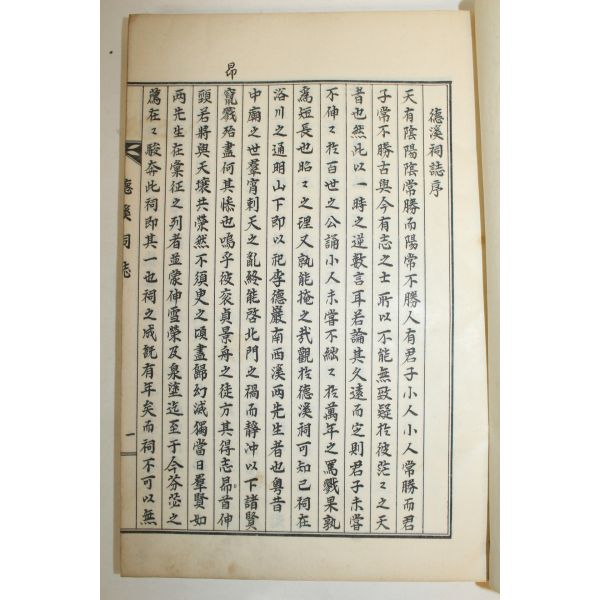 德溪祠誌序
天有陰陽陰常勝而陽常不勝人有君子小人小人常勝而君
子常不勝古與今有志之士所以不能無致疑於彼茫〻之天
者也然此以一時之逆數言耳若論其久遠而定則君子未嘗
不伸〻於百世之公誦小人未嘗不絀〻於萬年之罵戮果孰
爲短長也昭〻之理又孰能掩之哉觀於德溪祠可知已祠在
浴川之通明山下即以祀李德巖南西溪兩先生者也粤昔
中廟之世羣宵刺天之亂終能啓北門之禍而靜冲以下諸賢
竄戮殆盡何其慘也嗚乎彼袞貞景舟之徒方其得志昻首伸
頭若將與天壤共榮然不須臾之頃盡歸幻滅獨當日羣賢如
兩先生在彙征之列者並蒙伸雪榮及泉塗迄至于今芬苾之
薦在〻駿奔此祠即其一也祠之成旣有年矣而祠不可以無
昂
德溪祠誌
一